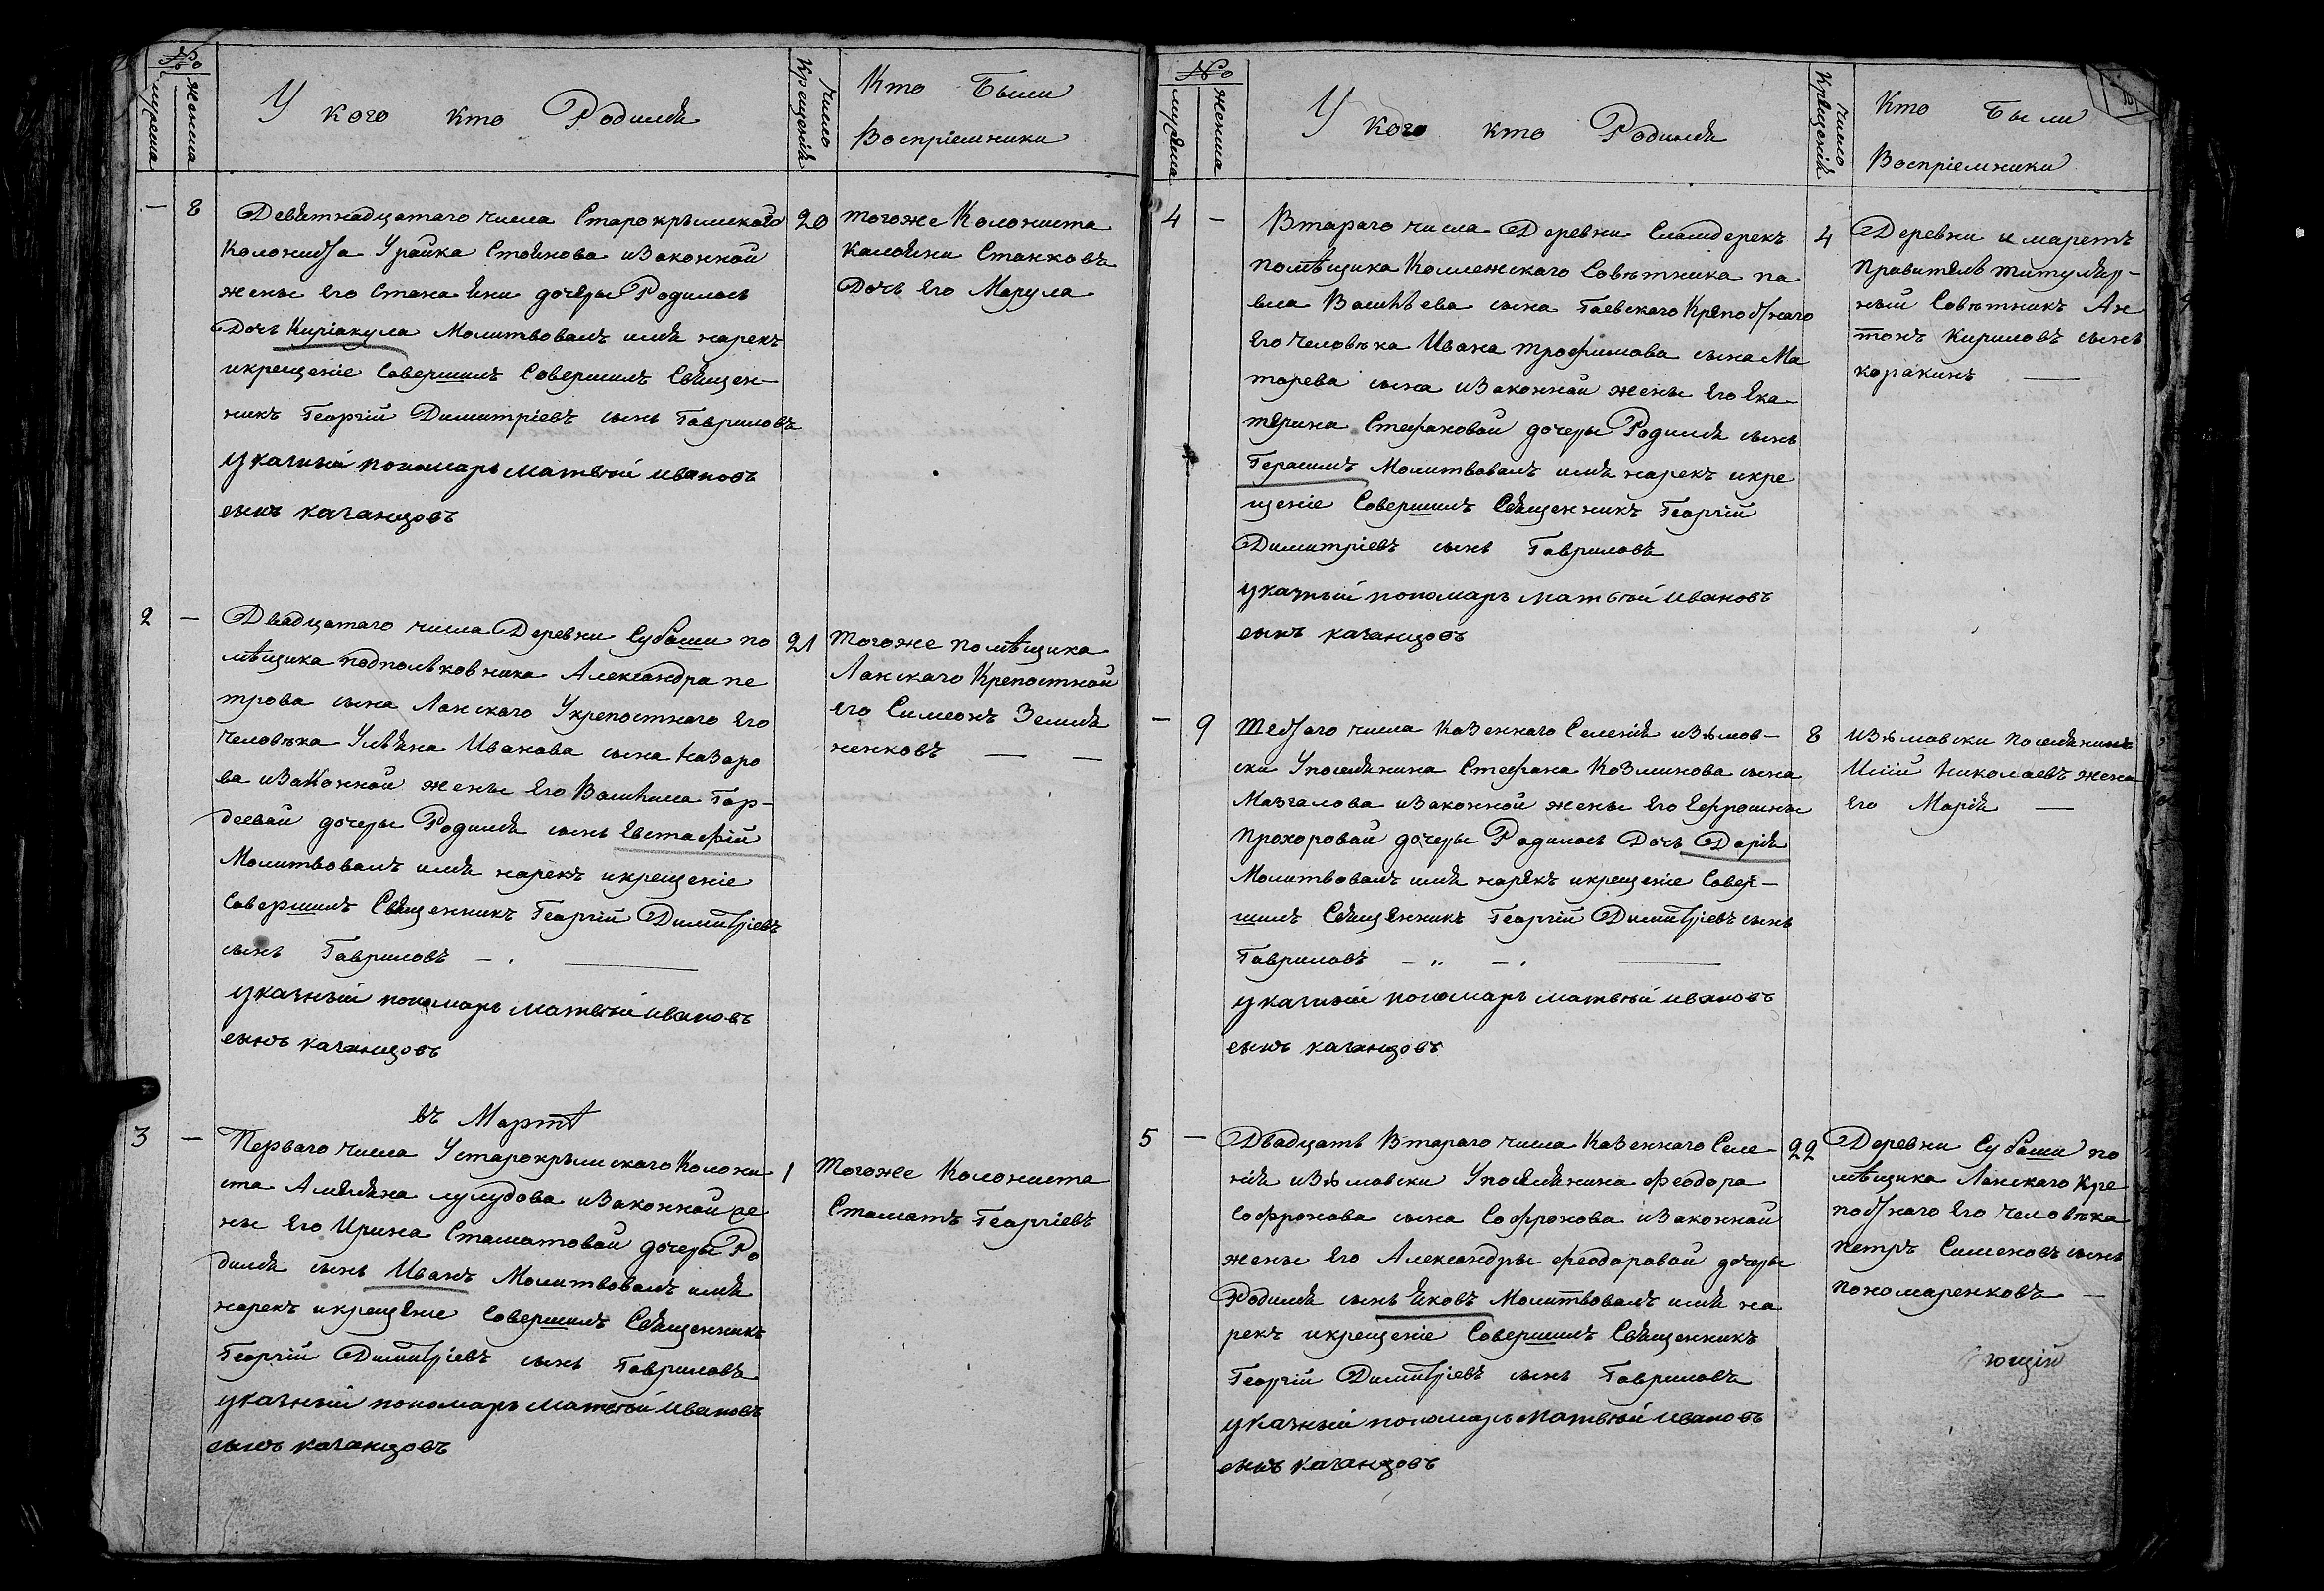 №
мужеска
женска
У кого кто Родился
число
Крещения
Кто Были
Воспрiемники
— 8
Девятнадцатаго числа Старокрымскаго
Колониста Урайка Стоянова изаконной
жены его Стана Яни дочеры Родилась
Дочь Кирiакула Молитвовалъ имя нарекъ
икрещенiе Совершилъ Совершилъ Священ-
никъ Георгiй Димитрiевъ сынъ Гавриловъ
указный пономарь матвѣй ивановъ
сынъ каганцовъ
20
тогоже Колониста
Калояни Станковъ
Дочь его Марула
2 —
Двадцатаго числа Деревни Субаши по
мѣщика подполковника Александра пе
трова сына Ланскаго Укрепостнаго его
человѣка Ульяна Иванова сына Назаро
ва изаконной жены его Василиса Гор-
деевой дочеры Родился сынъ Евстафiй
Молитвовалъ имя нарекъ икрещенiе
Совершилъ Священникъ Георгiй Димитрiевъ
сынъ Гавриловъ —
указный пономарь матвѣй ивановъ
сынъ каганцовъ
21
тогоже помѣщика
Ланскаго Крепостной
его Симеонъ Земля
ненковъ — —
въ Мартѣ
3 —
Перваго числа Устарокрымскаго Колони
ста Амеляна лулудова изаконной же
ны его Ирина Стаматовой дочеры Ро
дился сынъ Иванъ Молитвовалъ имя
нарекъ икрещенiе Совершилъ Священникъ
Георгiй Димитрiевъ сынъ Гавриловъ
указный пономарь матвѣй ивановъ
сынъ каганцовъ
1
тогоже Колониста
Стаматъ Георгiевъ
№
мужеска
женска
У кого кто Родился
число
Крещения
Кто Были
Воспрiемники
4 —
Втараго числа Деревни
помѣщика Коллежскаго Совѣтника па
вла Василѣева сына Гаевскаго Крепостнаго
его человѣка Ивана трофимова сына Ма
тарева сына изаконной жены его Ека-
терина Стефановой дочеры Родился сынъ
Герасимъ Молитвовалъ имя нарекъ икре
щенiе Совершилъ Священникъ Георгiй
Димитрiевъ сынъ Гавриловъ
указный пономарь матвѣй ивановъ
сынъ каганцовъ
4
Деревни имаретъ
правитель титуляр-
ный Совѣтникъ Ан
тонъ Кириловъ сынъ
каракинъ —
— 9
Шестаго числа Казеннаго Селенiя изюмов-
ски Упоселянина Стефана Козминова сына
Мазгалова изаконной жены его Ефрошны
прохоровой дочеры Родилась Дочь Дарiя
Молитвовалъ имя нарекъ икрещенiе Совер-
шилъ Священникъ Георгiй Димитрiевъ сынъ
Гавриловъ — — —
указный пономарь матвѣй ивановъ
сынъ каганцовъ
8
изюмовски поселянинъ
Илiй Николаевъ жена
его Марiя —
5 —
Двадцать Втараго числа Казеннаго Селе-
нiя изюмовски Упоселянина Феодора
Софронова сына Софронова изаконной
жены его Александры Феодоровой дочеры
Родился сынъ Яковъ Молитвовалъ имя на
рекъ икрещенiе Совершилъ Священникъ
Георгiй Димитрiевъ сынъ Гавриловъ
указный пономарь матвѣй ивановъ
сынъ каганцовъ
22
Деревни Субаши по
мѣщика Ланскаго Кре
постнаго его человѣка
петръ Сименовъ сынъ
пономаренковъ —
ющiй